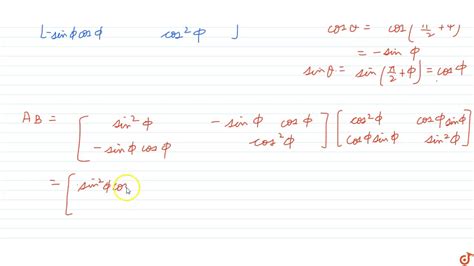 [-sinφcosφ cos²φ ]
cosθ = cos(π/2 + φ)
= -sinφ
sinθ = sin(π/2 + φ) = cosφ
AB = [ sin²φ -sinφ cosφ ] [ cos²φ cosφ sinφ ]
[ -sinφ cosφ cos²φ ] [ cosφ sinφ sin²φ ]
= [ sin²φ cos